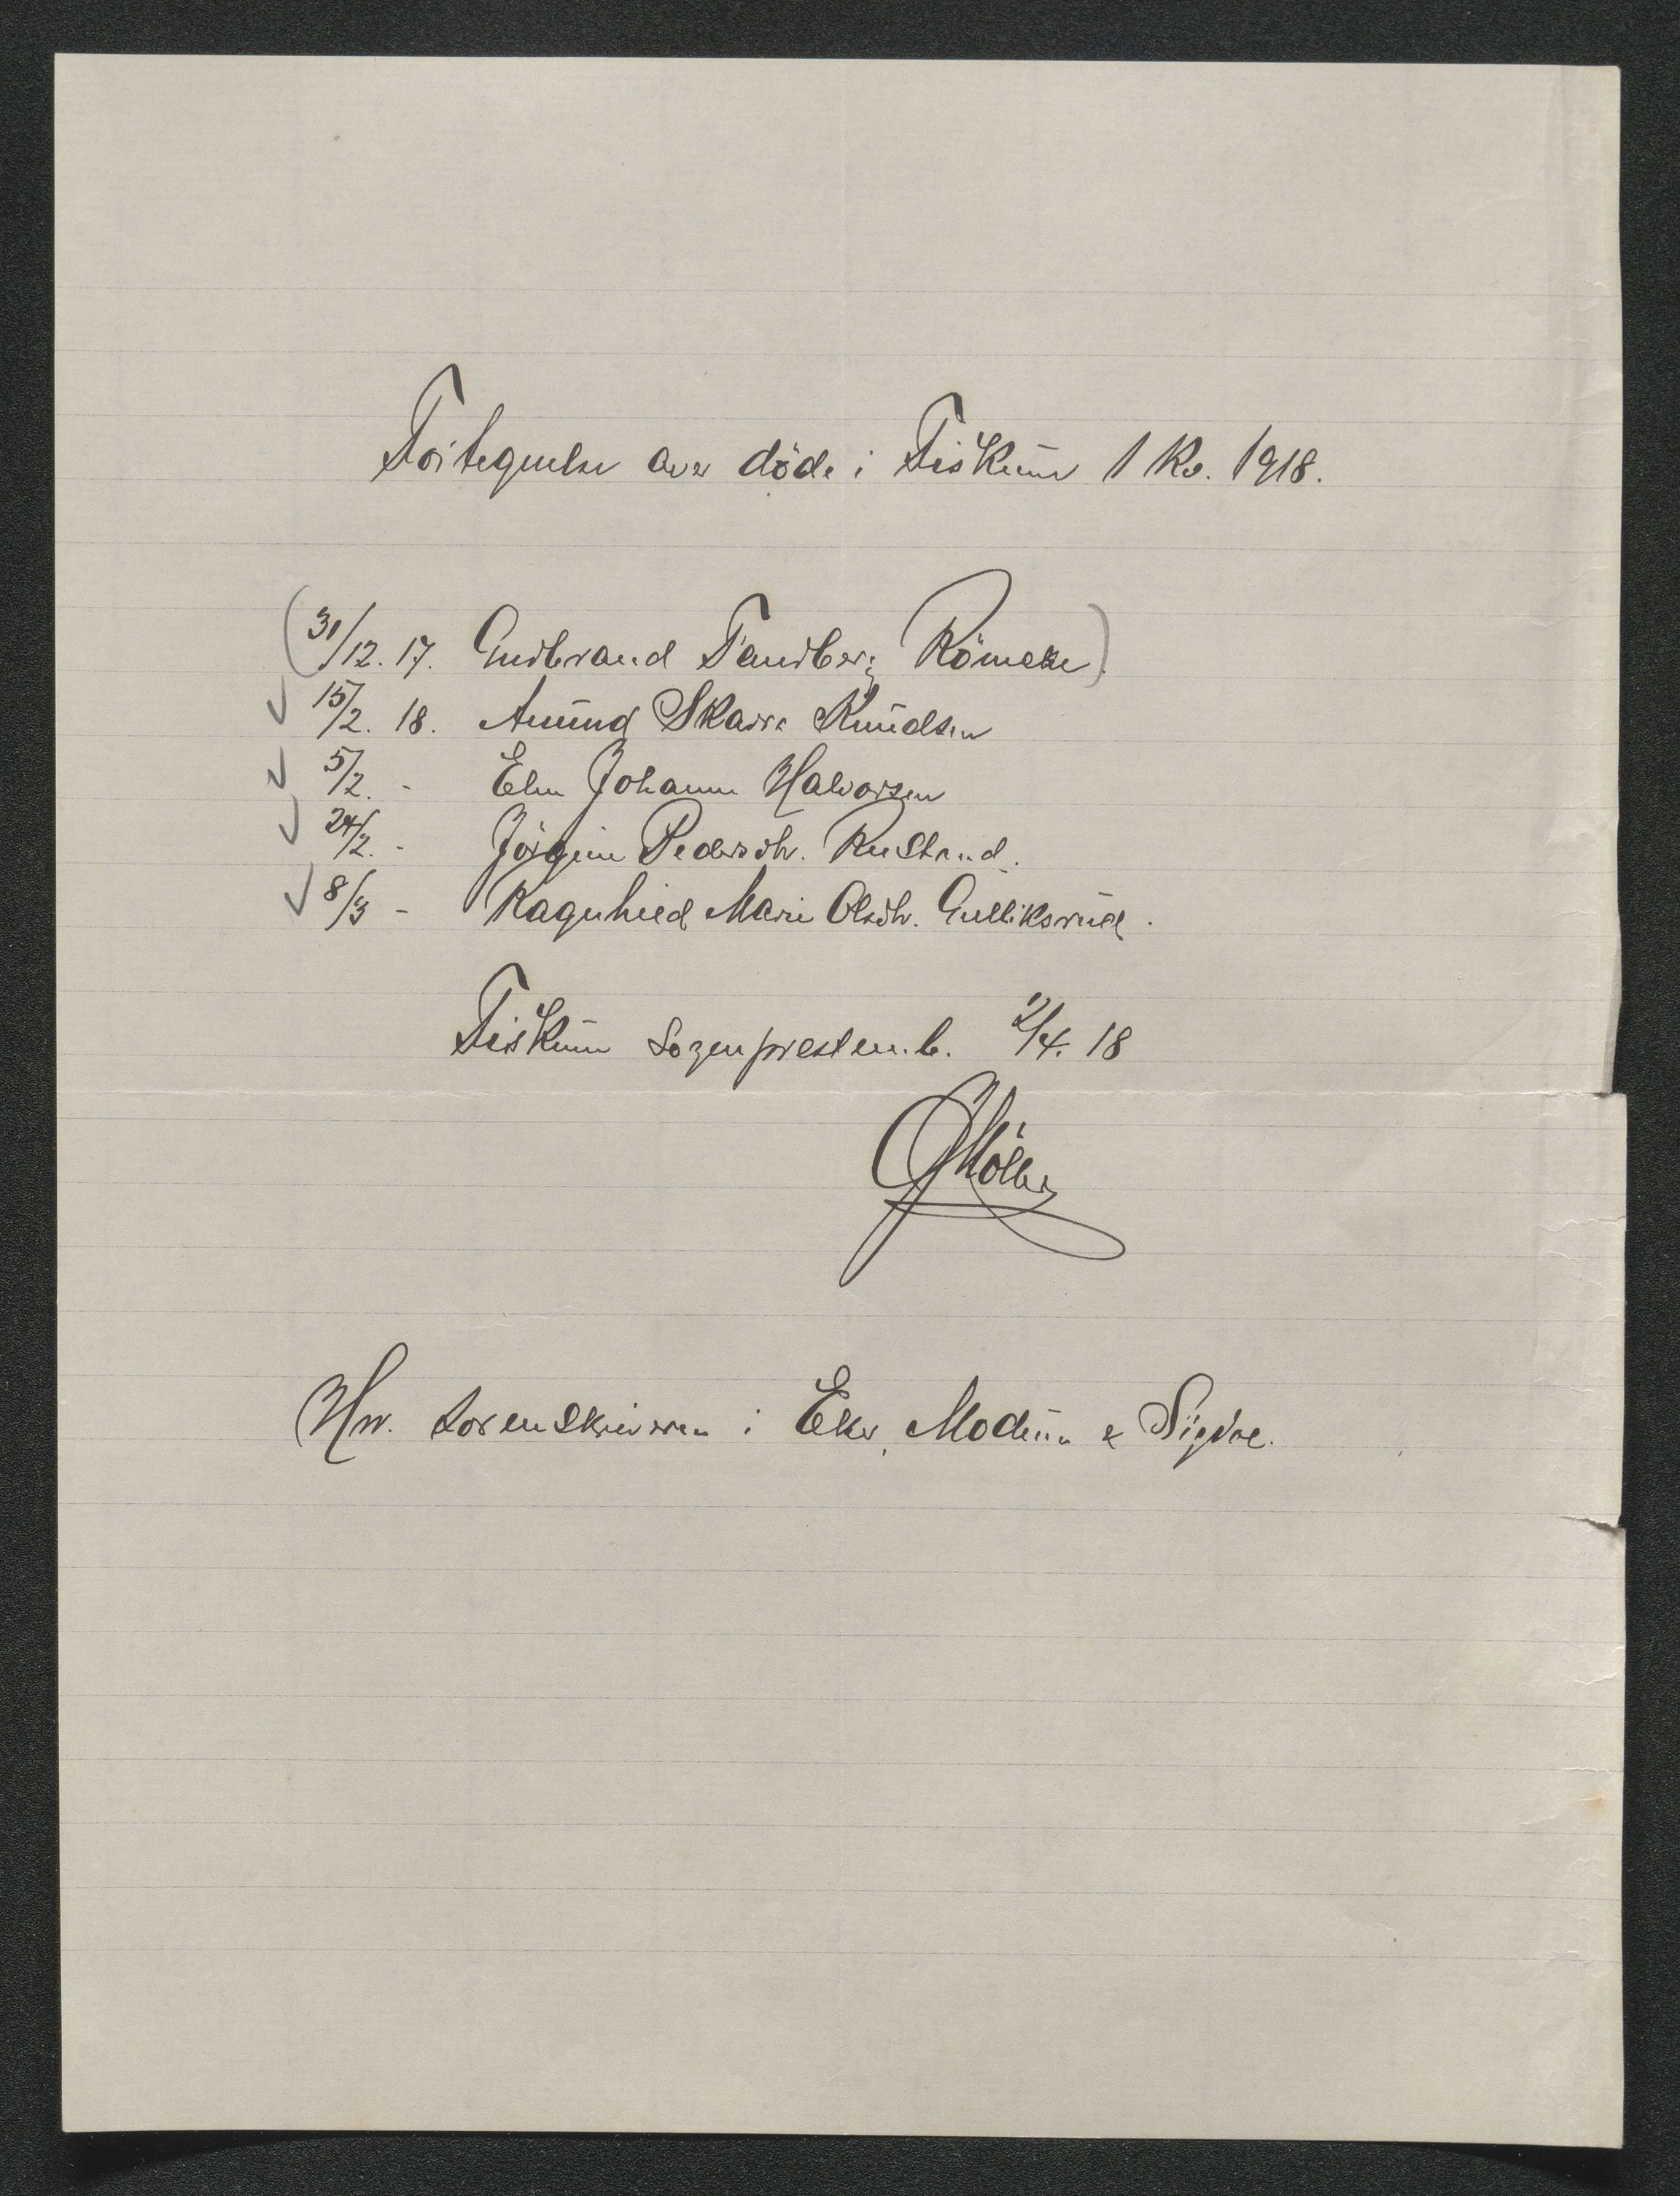 Fortegnelse over döde i Fiskum 1 Kv. 1918.
(31/12. 17. Gudbrand Tandberg Römcke)
15/2. 18. Amund Skarra Knudsen
5/2. - Elen Johanne Halvorsen
24/2. - Jörgine Pedersdtr. Rustand.
8/3 - Ragnhild Marie Olsdtr. Gulliksrud.
Fiskum Sogneprestemb. 2/4. 18
Möller
Hr. Sorenskriveren i Eker, Modum & Sigdal.